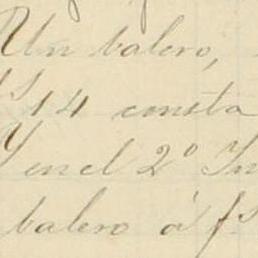 Un balero,
14 consta
Y en el 2º In
balero á f.s